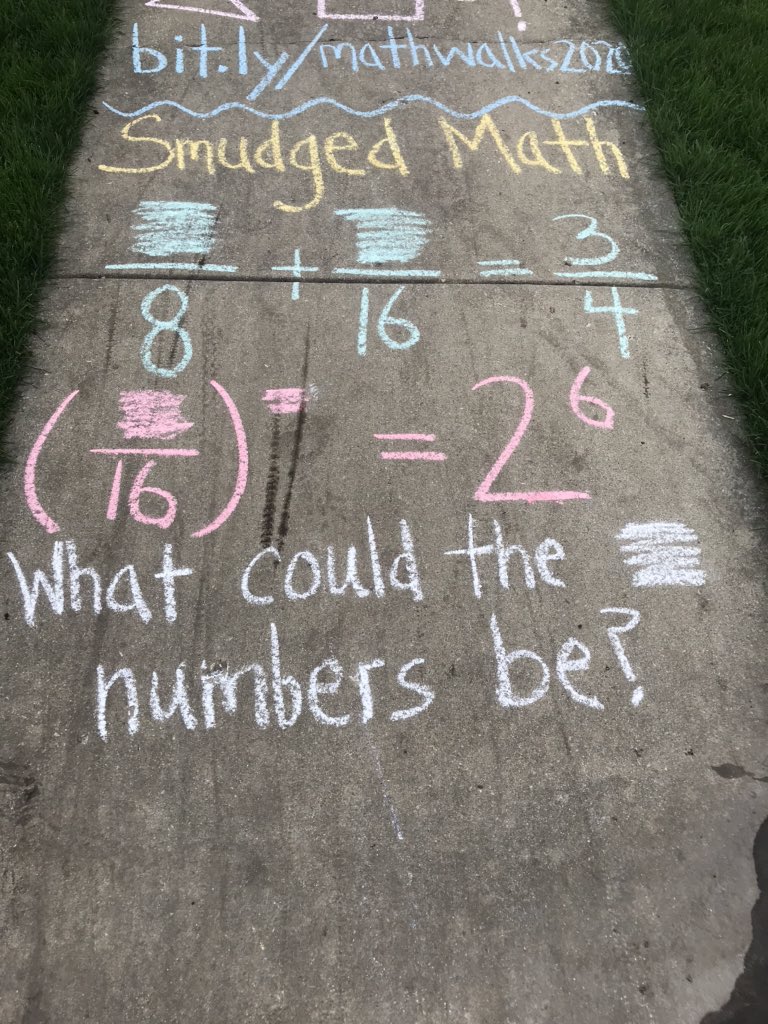 bit.ly/mathwalks2020
Smudged Math
/8 + /16 = 3/4
( /16) = 2^6
What could the
numbers be?